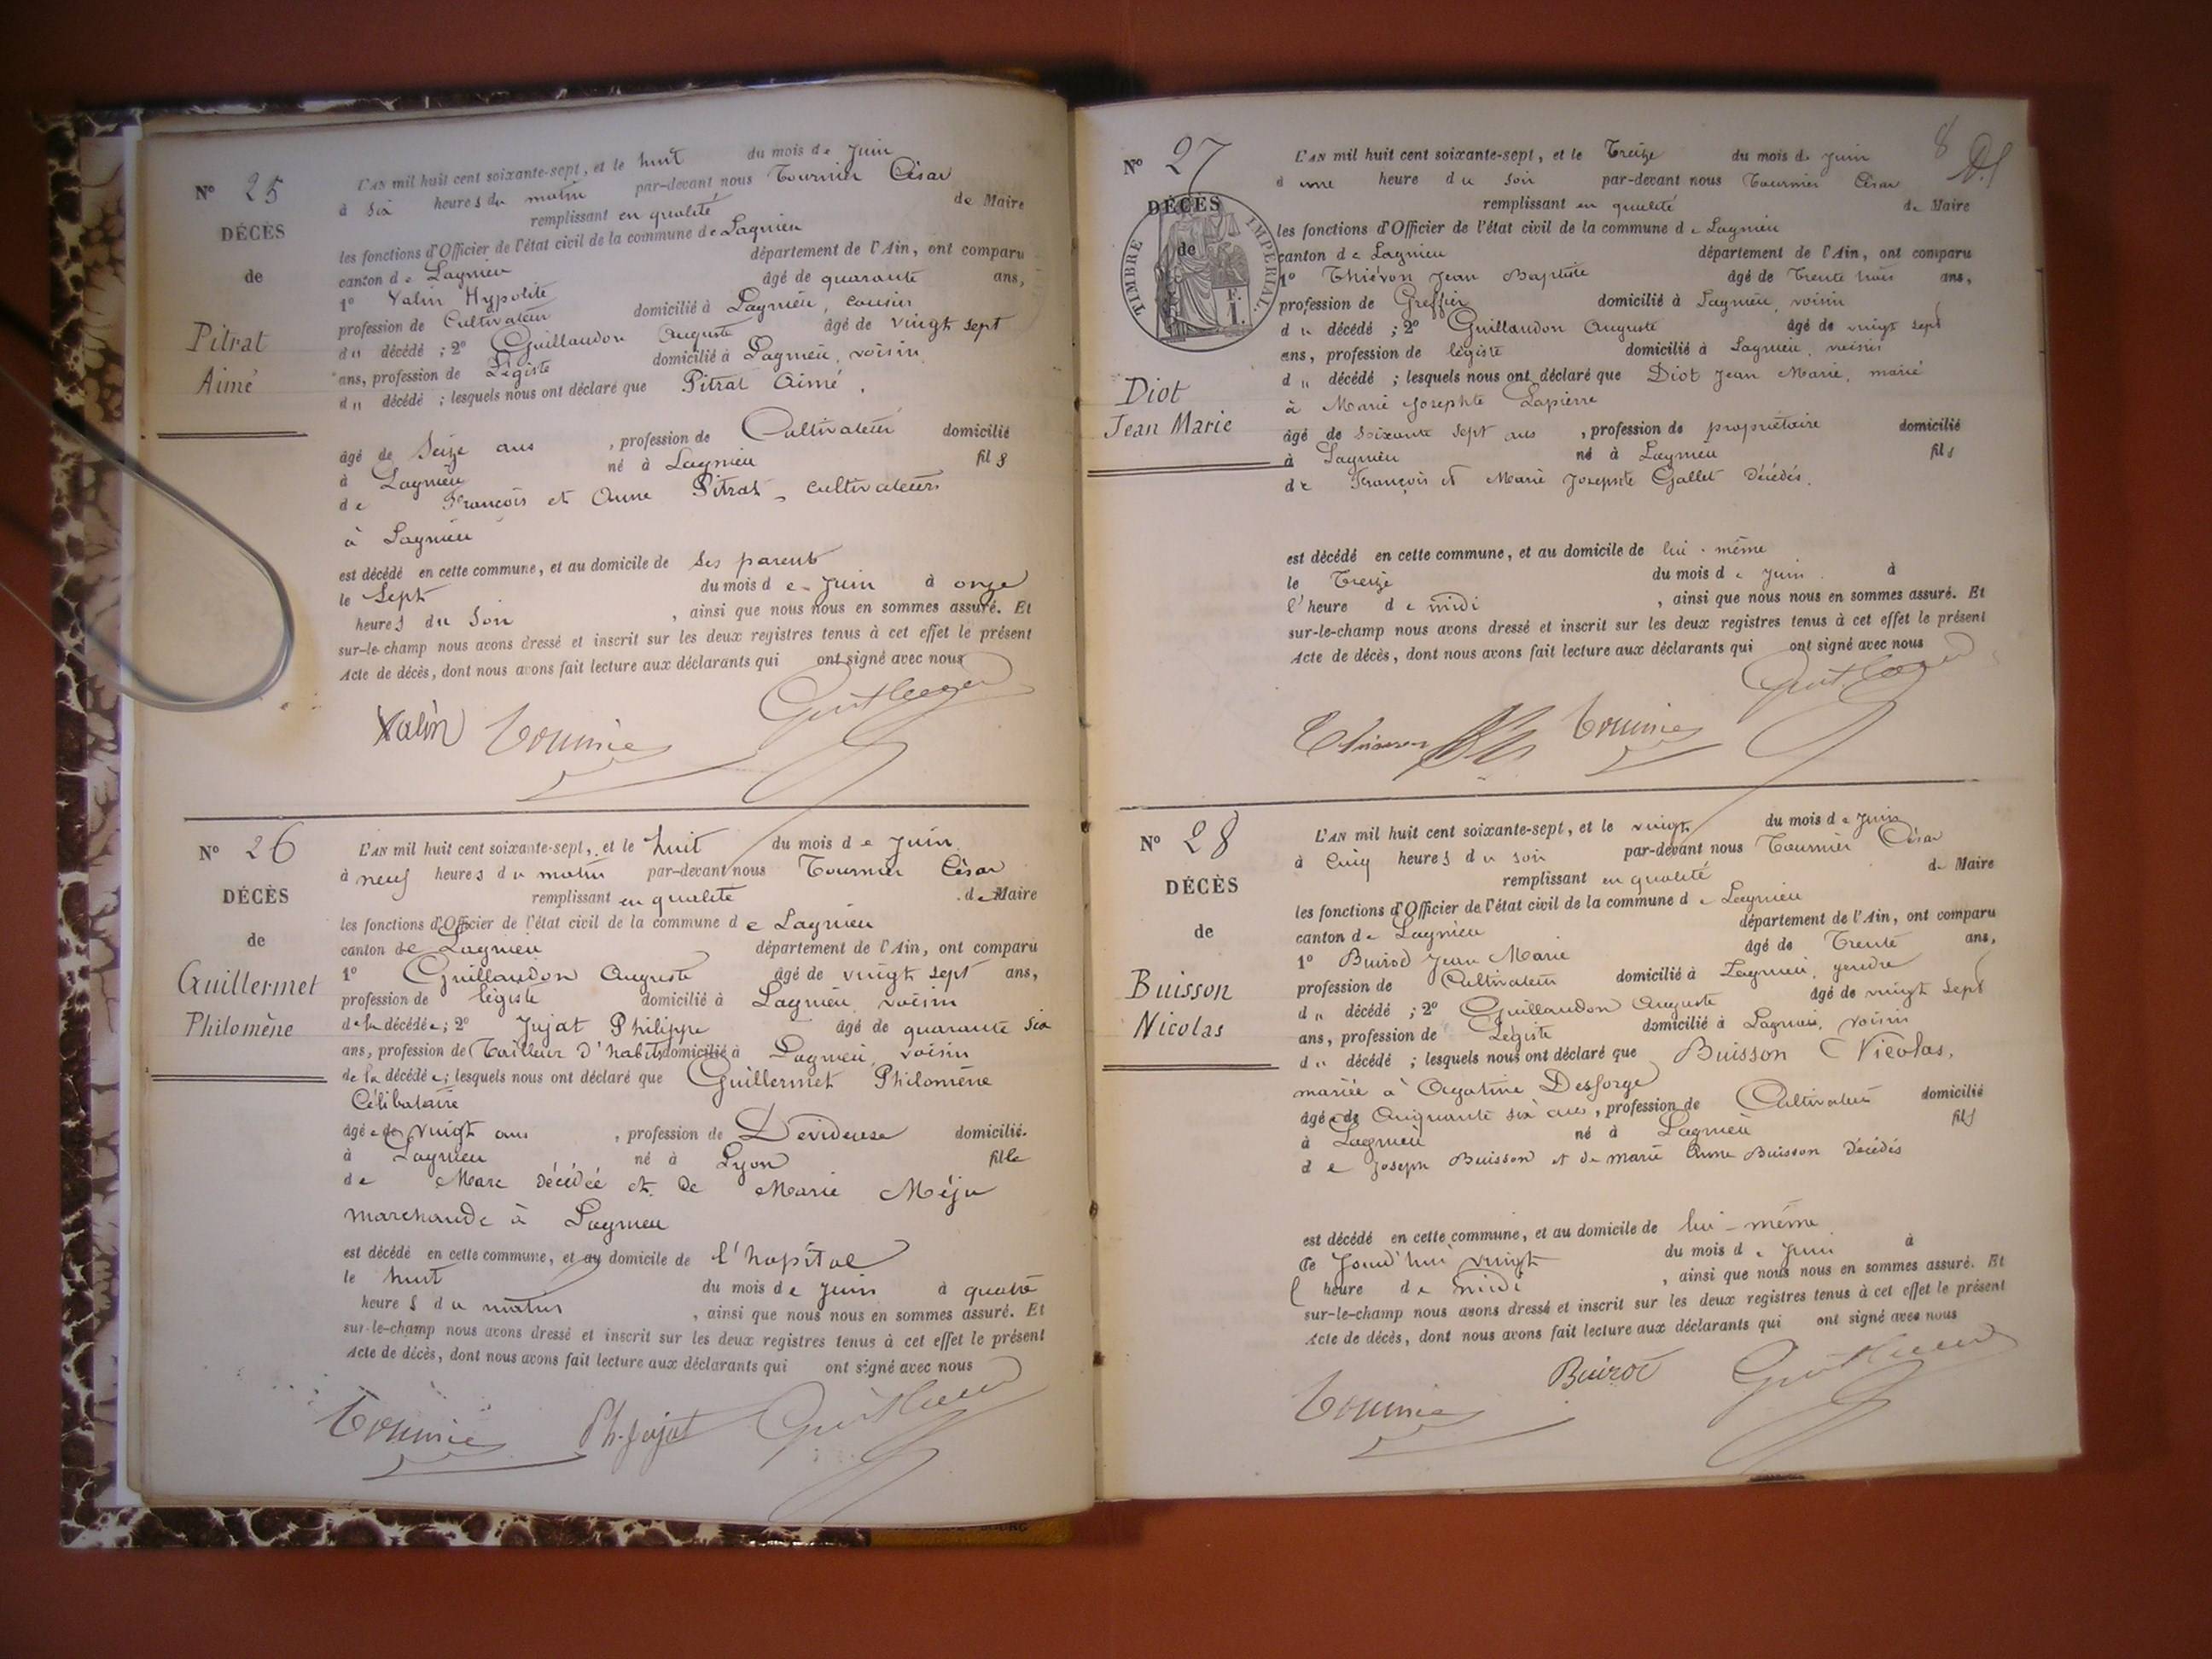 N° 25
DÉCÈS
de
Pitrat
Aimé
L'AN mil huit cent soixante-sept, et le huit du mois de Juin
à six heures du matin par-devant nous Tournier César
remplissant en qualité de Maire
les fonctions d'Officier de l'état civil de la commune de Lagnieu
canton de Lagnieu département de l'Ain, ont comparu
1° Valin Hypolite âgé de quarante ans,
profession de Cultivateur domicilié à Lagnieu, cousin
du décédé ; 2° Guillaudon Auguste âgé de vingt sept
ans, profession de Légiste domicilié à Lagnieu, voisin
du décédé ; lesquels nous ont déclaré que Pitrat Aimé,
âgé de Seize ans , profession de Cultivateur domicilié
à Lagnieu né à Lagnieu fils
de François et Anne Pitrat, cultivateurs
à Lagnieu
est décédé en cette commune, et au domicile de ses parents
le Sept du mois de Juin à onze
heures du Soir , ainsi que nous nous en sommes assuré. Et
sur-le-champ nous avons dressé et inscrit sur les deux registres tenus à cet effet le présent
Acte de décès, dont nous avons fait lecture aux déclarants qui ont signé avec nous
Valin Tournier
N° 26
DÉCÈS
de
Guillermet
Philomène
L'AN mil huit cent soixante-sept, et le huit du mois de Juin
à neuf heures du matin par-devant nous Tournier César
remplissant en qualité de Maire
les fonctions d'Officier de l'état civil de la commune de Lagnieu
canton de Lagnieu département de l'Ain, ont comparu
1° Guillaudon Auguste âgé de vingt sept ans,
profession de légiste domicilié à Lagnieu voisin
de la décédée ; 2° Jujat Philippe âgé de quarante six
ans, profession de Tailleur d'habits domicilié à Lagnieu, voisin
de la décédée ; lesquels nous ont déclaré que Guillermet Philomène
Célibataire
âgée de vingt ans , profession de Devideuse domicilié.
à Lagnieu né à Lyon fille
de Marc décédée et de Marie Méju
marchande à Lagnieu
est décédé en cette commune, et au domicile de l'hopital
le huit du mois de Juin à quatre
heures du matin , ainsi que nous nous en sommes assuré. Et
sur-le-champ nous avons dressé et inscrit sur les deux registres tenus à cet effet le présent
Acte de décès, dont nous avons fait lecture aux déclarants qui ont signé avec nous
Tournier Ph. Jujat
8
N° 27
DÉCÈS
de
TIMBRE IMPERIAL
F. 1.
Diot
Jean Marie
L'AN mil huit cent soixante-sept, et le Treize du mois de Juin
à une heure du soir par-devant nous Tournier César
remplissant en qualité de Maire
les fonctions d'Officier de l'état civil de la commune de Lagnieu
canton de Lagnieu département de l'Ain, ont comparu
1° Thiévon Jean Baptiste âgé de Trente trois ans,
profession de Greffier domicilié à Lagnieu, voisin
du décédé ; 2° Guillaudon Auguste âgé de vingt sept
ans, profession de légiste domicilié à Lagnieu, voisin
du décédé ; lesquels nous ont déclaré que Diot Jean Marie, marié
à Marie Josephte Lapierre
âgé de soixante sept ans , profession de propriétaire domicilié
à Lagnieu né à Lagnieu fils
de François et Marie Josephte Gallet Décédés.
est décédé en cette commune, et au domicile de lui-même
le Treize du mois de Juin à
l'heure de midi , ainsi que nous nous en sommes assuré. Et
sur-le-champ nous avons dressé et inscrit sur les deux registres tenus à cet effet le présent
Acte de décès, dont nous avons fait lecture aux déclarants qui ont signé avec nous
Tournier
N° 28
DÉCÈS
de
Buisson
Nicolas
L'AN mil huit cent soixante-sept, et le vingt du mois de Juin
à Cinq heures du soir par-devant nous Tournier César
remplissant en qualité de Maire
les fonctions d'Officier de l'état civil de la commune de Lagnieu
canton de Lagnieu département de l'Ain, ont comparu
1° Buirod Jean Marie âgé de Trente ans,
profession de Cultivateur domicilié à Lagnieu, gendre
du décédé ; 2° Guillaudon Auguste âgé de vingt sept
ans, profession de Légiste domicilié à Lagnieu, voisin
du décédé ; lesquels nous ont déclaré que Buisson Nicolas,
mariée à Agatine Desforge
âgé de Cinquante six ans , profession de Cultivateur domicilié
à Lagnieu né à Lagnieu fils
de Joseph Buisson et de marie Anne Buisson Décédés
est décédé en cette commune, et au domicile de lui-même
le Jourd'hui vingt du mois de Juin à
l heure de midi , ainsi que nous nous en sommes assuré. Et
sur-le-champ nous avons dressé et inscrit sur les deux registres tenus à cet effet le présent
Acte de décès, dont nous avons fait lecture aux déclarants qui ont signé avec nous
Tournier Buirod